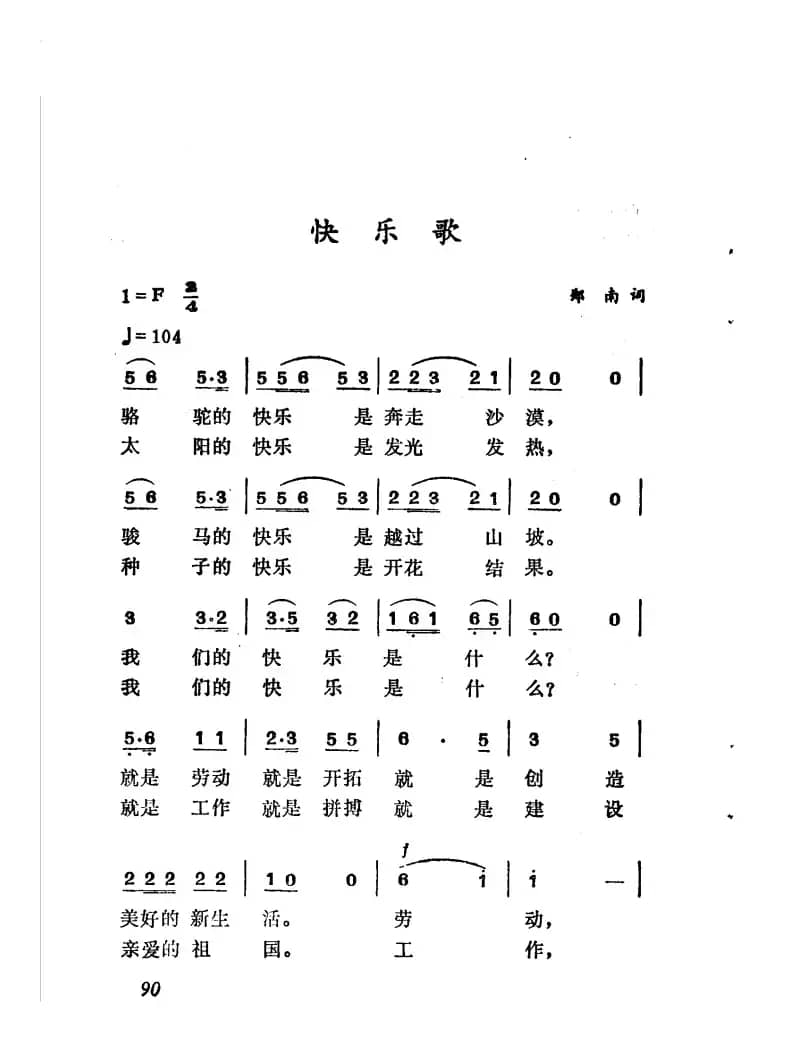 快乐歌
1=F 2/4 郑南词
♩=104
5 6 5·3 | 5 5 6 5 3 | 2 2 3 2 1 | 2 0 0 |
骆 驼的 快乐 是 奔走 沙 漠，
太 阳的 快乐 是 发光 发 热，
5 6 5·3 | 5 5 6 5 3 | 2 2 3 2 1 | 2 0 0 |
骏 马的 快乐 是 越过 山 坡。
种 子的 快乐 是 开花 结 果。
3 3·2 | 3·5 3 2 | 1 6̣ 1 6̣ 5̣ | 6̣ 0 0 |
我 们的 快 乐 是 什 么？
我 们的 快 乐 是 什 么？
5̣·6̣ 1 1 | 2·3 5 5 | 6 · 5 | 3 5 |
就是 劳动 就是 开拓 就 是 创 造
就是 工作 就是 拼搏 就 是 建 设
f
2 2 2 2 2 | 1 0 0 | 6 i | i — |
美好的 新生 活。 劳 动，
亲爱的 祖 国。 工 作，
90